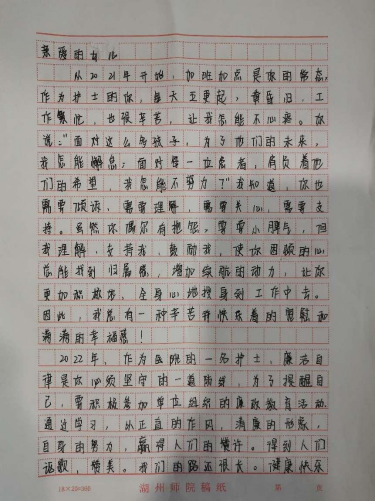 亲爱的女儿
从2021年开始,加班加点是你的常态,
作为护士的你,每天五更起,黄昏归,工
作繁忙,也很辛苦,让我怎能不心疼。你
说:"面对这么多孩子,为了他们的未来,
我怎能懈怠;面对每一位患者,肩负着他
们的希望,我怎能不努力?"我知道,你也
需要倾诉、需要理解、需要关心、需要支
持。虽然你偶尔有抱怨,耍耍小脾气,但
我理解、支持我、鼓励我,使你困顿的心
总能找到归属感,增加续航的动力,让你
更加积极、全身心地投身到工作中去。
因此,我总有一种辛苦并快乐着的
满满的幸福感!
2022年,作为医院的一名护士,廉洁自
律是你必须坚守的一道防线,为了提醒自
己,要积极参加单位组织的廉政教育活动
通过学习,从正直的作风,清廉的
自身的努力,赢得人们的赞许。得到人们
讴歌,赞美。我们的路还很长。健康快乐
18×20=360
湖州师院稿纸
第 页